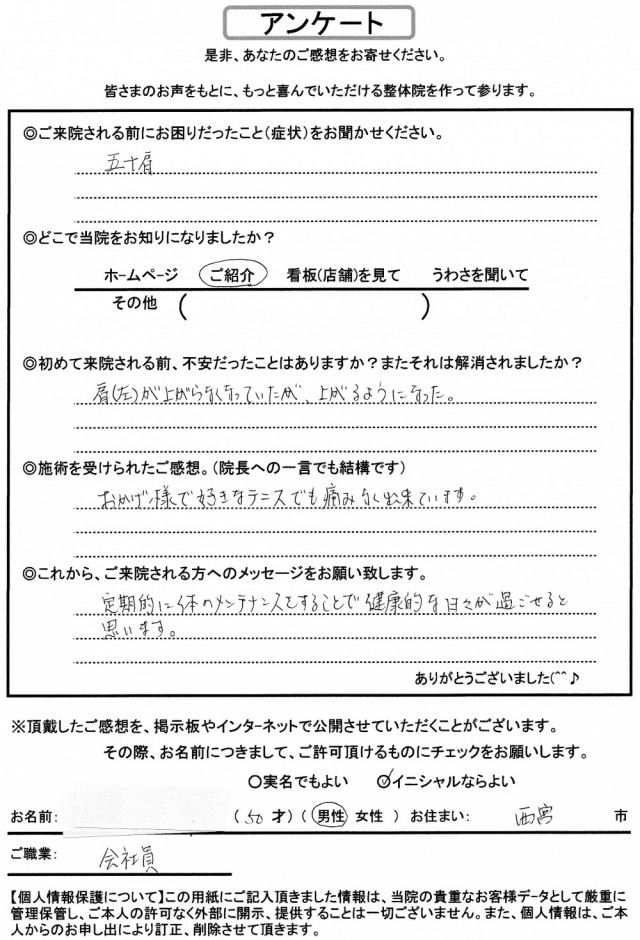 アンケート
是非、あなたのご感想をお寄せください。
皆さまのお声をもとに、もっと喜んでいただける整体院を作って参ります。
◎ご来院される前にお困りだったこと(症状)をお聞かせください。
五十肩
◎どこで当院をお知りになりましたか？
ホームページ ご紹介 看板(店舗)を見て うわさを聞いて
その他 ( )
◎初めて来院される前、不安だったことはありますか？またそれは解消されましたか？
肩(左)が上がらなくなっていたが、上がるようになった。
◎施術を受けられたご感想。(院長への一言でも結構です)
おかげ様で好きなテニスでも痛みなく出来ています。
◎これから、ご来院される方へのメッセージをお願い致します。
定期的に体のメンテナンスをすることで健康的な日々が過ごせると
思います。
ありがとうございました(^^♪
※頂戴したご感想を、掲示板やインターネットで公開させていただくことがございます。
その際、お名前につきまして、ご許可頂けるものにチェックをお願いします。
○実名でもよい ○✓イニシャルならよい
お名前: ( 50 才) ( 男性 女性 ) お住まい: 西宮 市
ご職業: 会社員
【個人情報保護について】この用紙にご記入頂きました情報は、当院の貴重なお客様データとして厳重に
管理保管し、ご本人の許可なく外部に開示、提供することは一切ございません。また、個人情報は、ご本
人からのお申し出により訂正、削除させて頂きます。